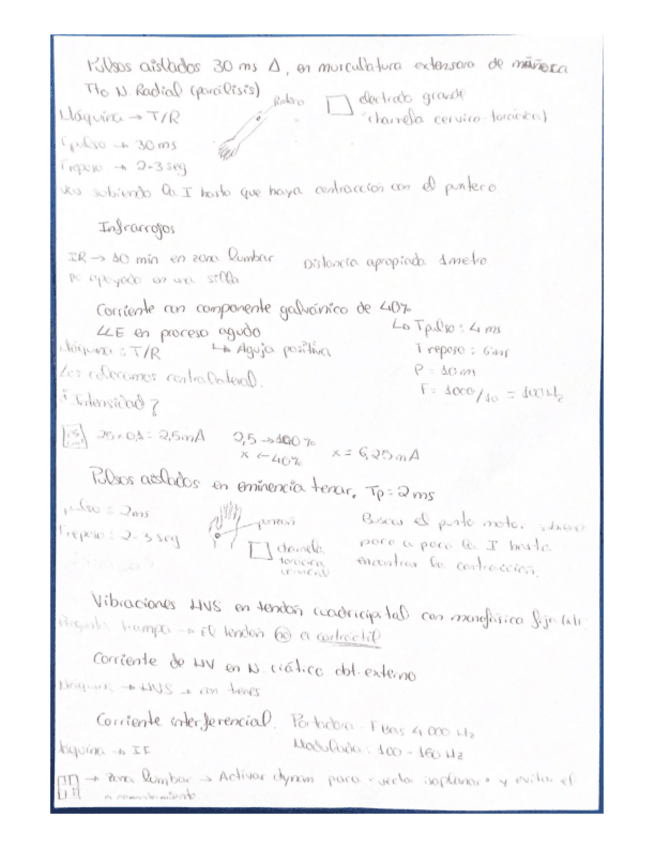 Pulsos aislados 30 ms Δ, en musculatura extensora de muñeca
Tto N. Radial (parálisis)
Máquina → T/R
electrodo grande
charnela cervico-torácica)
Tpulso → 30 ms
Treposo → 2-3 seg
subiendo la I hasta que haya contracción con el puntero
Infrarrojos
IR → 10 min en zona lumbar Distancia apropiada 1 metro
PC apoyado en una silla
Corriente con componente galvánico de 40%
LLE en proceso agudo
↳ Tpulso: 4 ms
Máquina: T/R ↳ Aguja positiva
Treposo: 6 ms
P = 10 ms
F: 1000/10 = 100 Hz
Los colocamos contralateral.
¿Intensidad?
25 × 0,1 = 2,5 mA 2,5 → 100%
x ← 40% x = 6,25 mA
Pulsos aislados en eminencia tenar, Tp = 2 ms
Tpulso = 2 ms
Treposo: 2-3 seg
puntero
charnela
Buscar el punto motor,
poco a poco la I hasta
encontrar la contracción.
Vibraciones HVS en tendón cuadricipital con monofásica fija
trampa → el tendón no es contráctil
Corriente de HV en N. ciático obt. externo
Máquina → HVS → con tens
Corriente interferencial. Portadora: F Bas 4000 Hz
Máquina → IF
Modulada: 100 - 150 Hz
→ zona lumbar → Activar dynam para vector isoplanar y evitar el